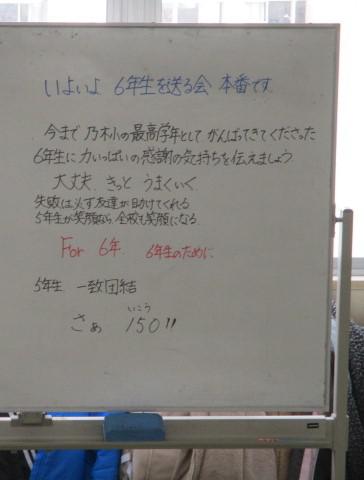 いよいよ 6年生を送る会 本番です
今まで 乃木小の最高学年として がんばってきてくださった
6年生に 力いっぱいの感謝の気持ちを伝えましょう
大丈夫。きっと うまくいく
失敗は必ず友達が助けてくれる
5年生が笑顔なら、全校も笑顔になる
For 6年 6年生のために
5年生 一致団結
いこう
さぁ 150!!